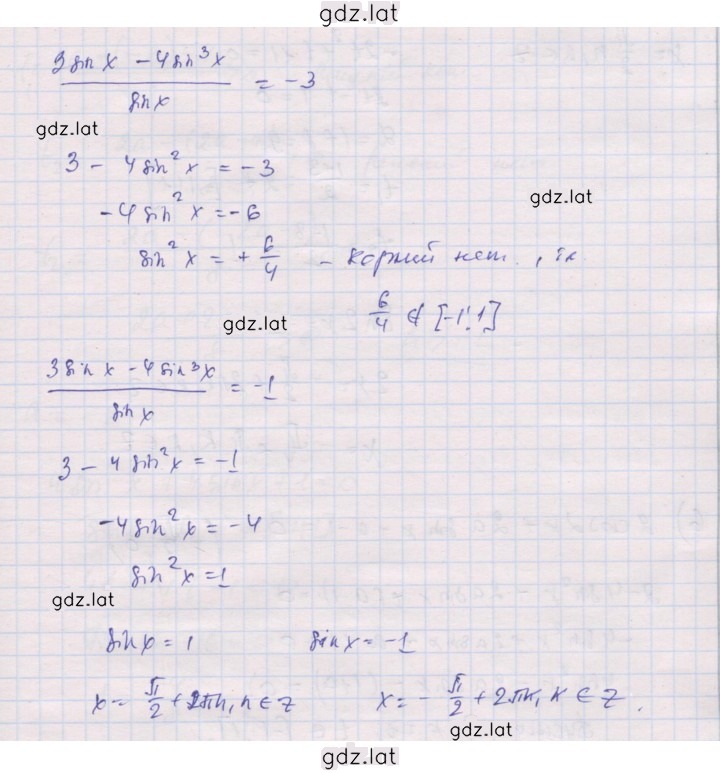 gdz.lat
(3sin x - 4sin³x)/(sin x) = -3
gdz.lat
3 - 4sin²x = -3
-4sin²x = -6
gdz.lat
sin²x = + 6/4 - корней нет, тк
6/4 ∉ [-1; 1]
gdz.lat
(3sin x - 4sin³x)/(sin x) = -1
3 - 4sin²x = -1
-4sin²x = -4
sin²x = 1
gdz.lat
sin x = 1 sin x = -1
x = π/2 + 2πn, n ∈ Z x = - π/2 + 2πk, k ∈ Z.
gdz.lat
gdz.lat